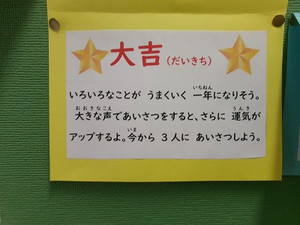 大吉（だいきち）
いろいろなことが うまくいく 一年になりそう。
大きな声であいさつをすると、さらに 運気が
アップするよ。今から 3 人に あいさつしよう。